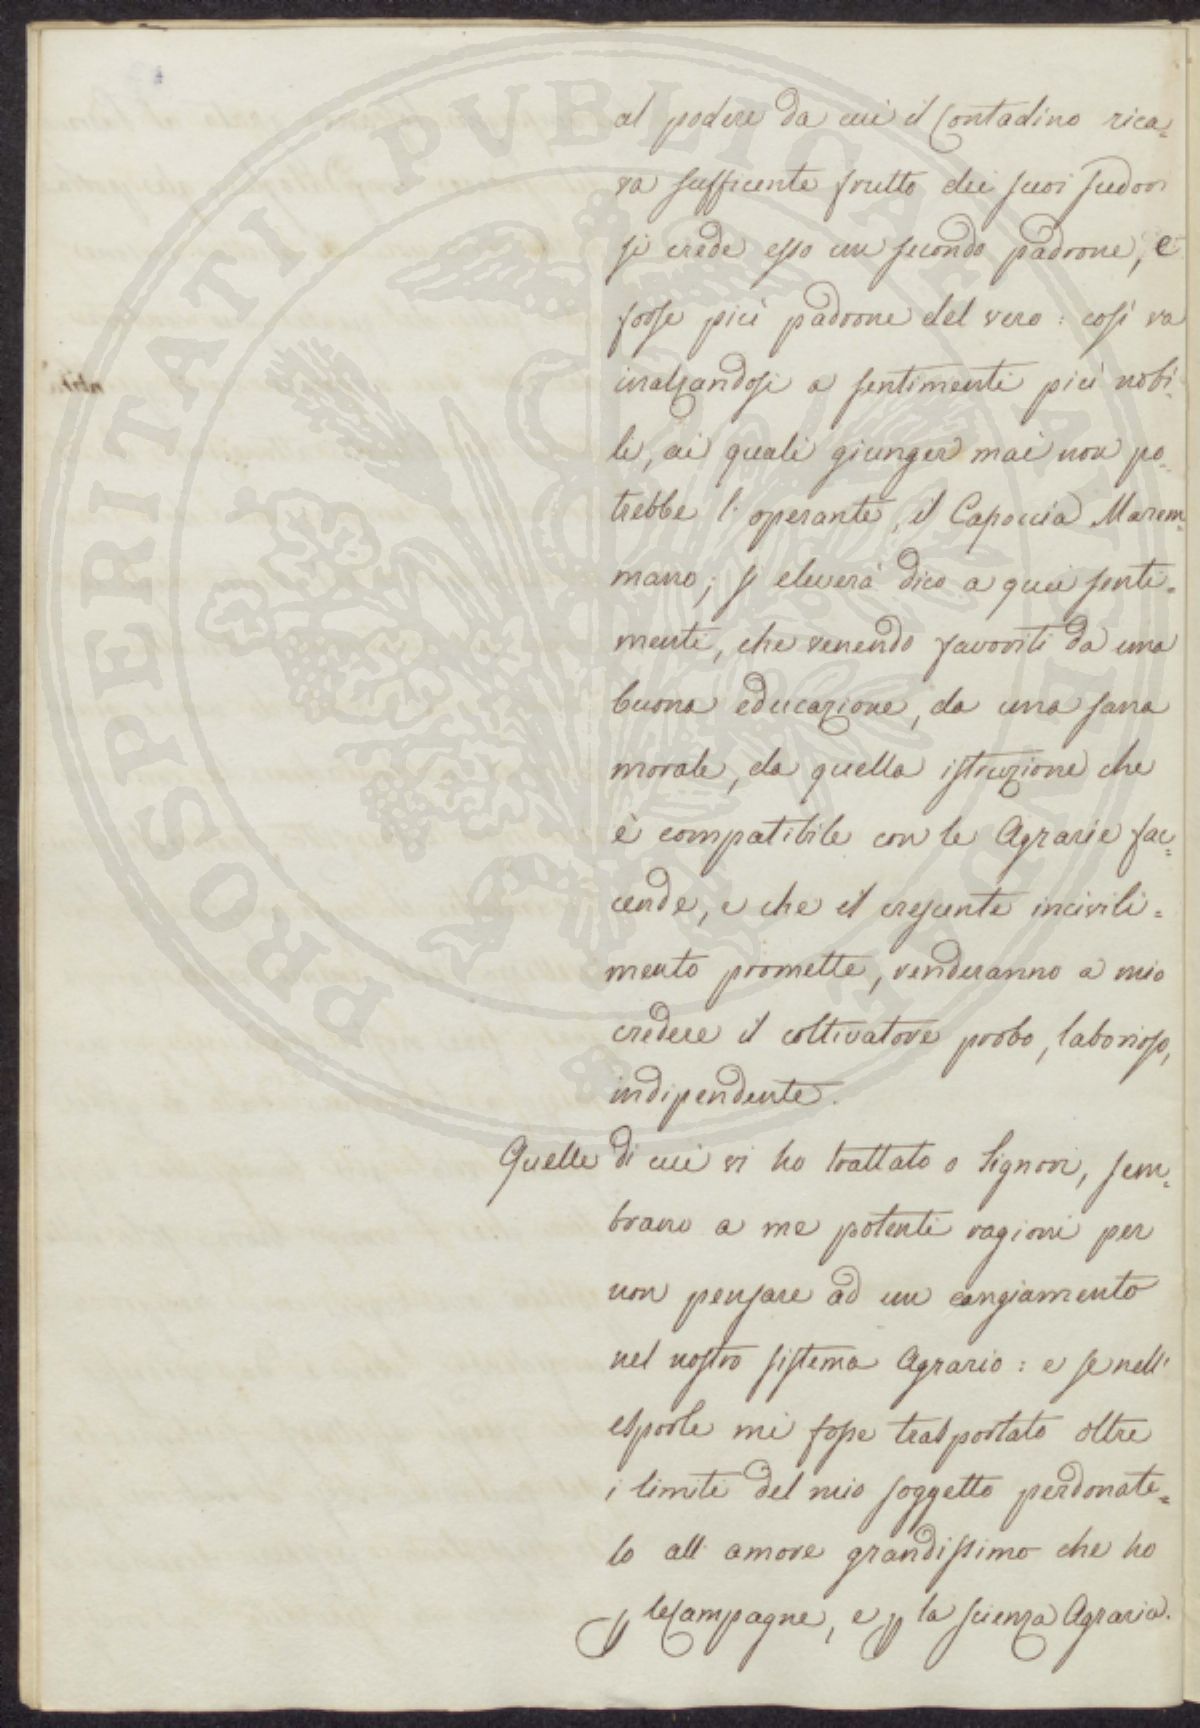 al podere da cui il Contadino rica=
va sufficente frutto dei suoi sudori
si crede esso un secondo padrone, e
forse più padrone del vero: così va
inalzandosi a sentimenti più nobi=
li, ai quali giunger mai non po=
trebbe l'operante, il Capoccia Marem=
mano; si eleverà dico a quei senti=
menti, che venendo favoriti da una
buona educazione, da una sana
morale, da quella istruzione che
è compatibile con le Agrarie fac=
cende, e che il crescente incivili=
mento promette, renderanno a mio
credere il coltivatore probo, laborioso,
indipendente.
Quelle di cui vi ho trattato o Signori, sem=
brano a me potenti ragioni per
non pensare ad un cangiamento
nel nostro sistema Agrario: e se nell'
esporle mi fosse trasportato oltre
i limiti del mio soggetto perdonate=
lo all'amore grandissimo che ho
p le Campagne, e p la scienza Agraria.
PROSPERITATI PUBLICAE AUGENDAE